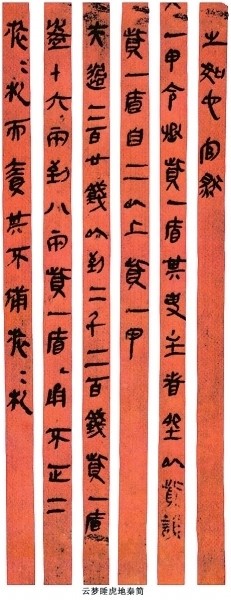 之如它官然
一甲令丞貲一盾其吏主者坐以貲誶
貲一盾自二以上貲一甲
夫過二百廿錢以到二千二百錢貲一盾
盈十六兩到八兩貲一盾甬不正二
旅=札而責其不備旅=札
云梦睡虎地秦简